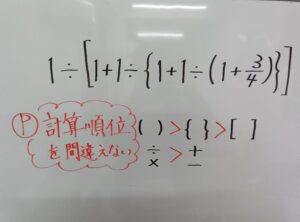 1÷[1+1÷{1+1÷(1+3/4)}]
Ⓟ 計算順位 ( ) > { } > [ ]
を間違えない ÷ × > + −